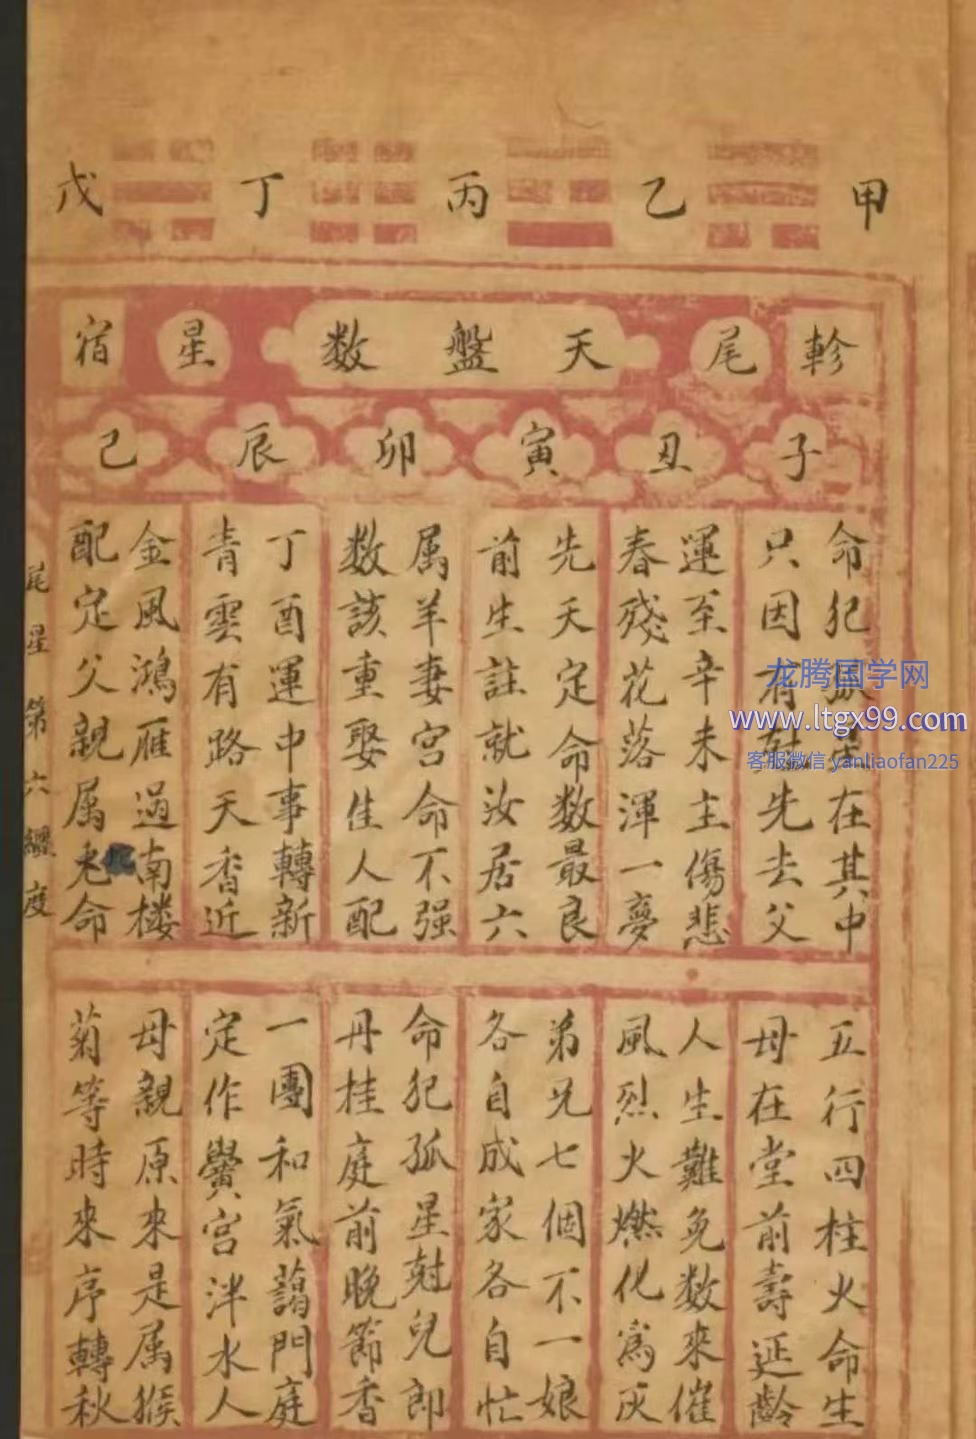 甲 乙 丙 丁 戊
軫 尾 天盤数 星 宿
子 丑 寅 卯 辰 己
命犯孤星在其中
只因有尅先去父
運至辛未主傷悲
春殘花落渾一夢
先天定命数最良
前生註就汝居六
属羊妻宮命不强
数該重娶佳人配
丁酉運中事轉新
青雲有路天香近
金風鴻雁過南楼
配定父親属兎命
五行四柱火命生
母在堂前壽延齡
人生難免数來催
風烈火燃化為灰
弟兄七個不一娘
各自成家各自忙
命犯孤星尅兒郎
丹桂庭前晚節香
一團和氣藹門庭
定作黌宮泮水人
母親原來是属猴
菊等時來序轉秋
尾星第六纏度
龙腾国学网
www.ltgx99.com
客服微信 yanliaofan225